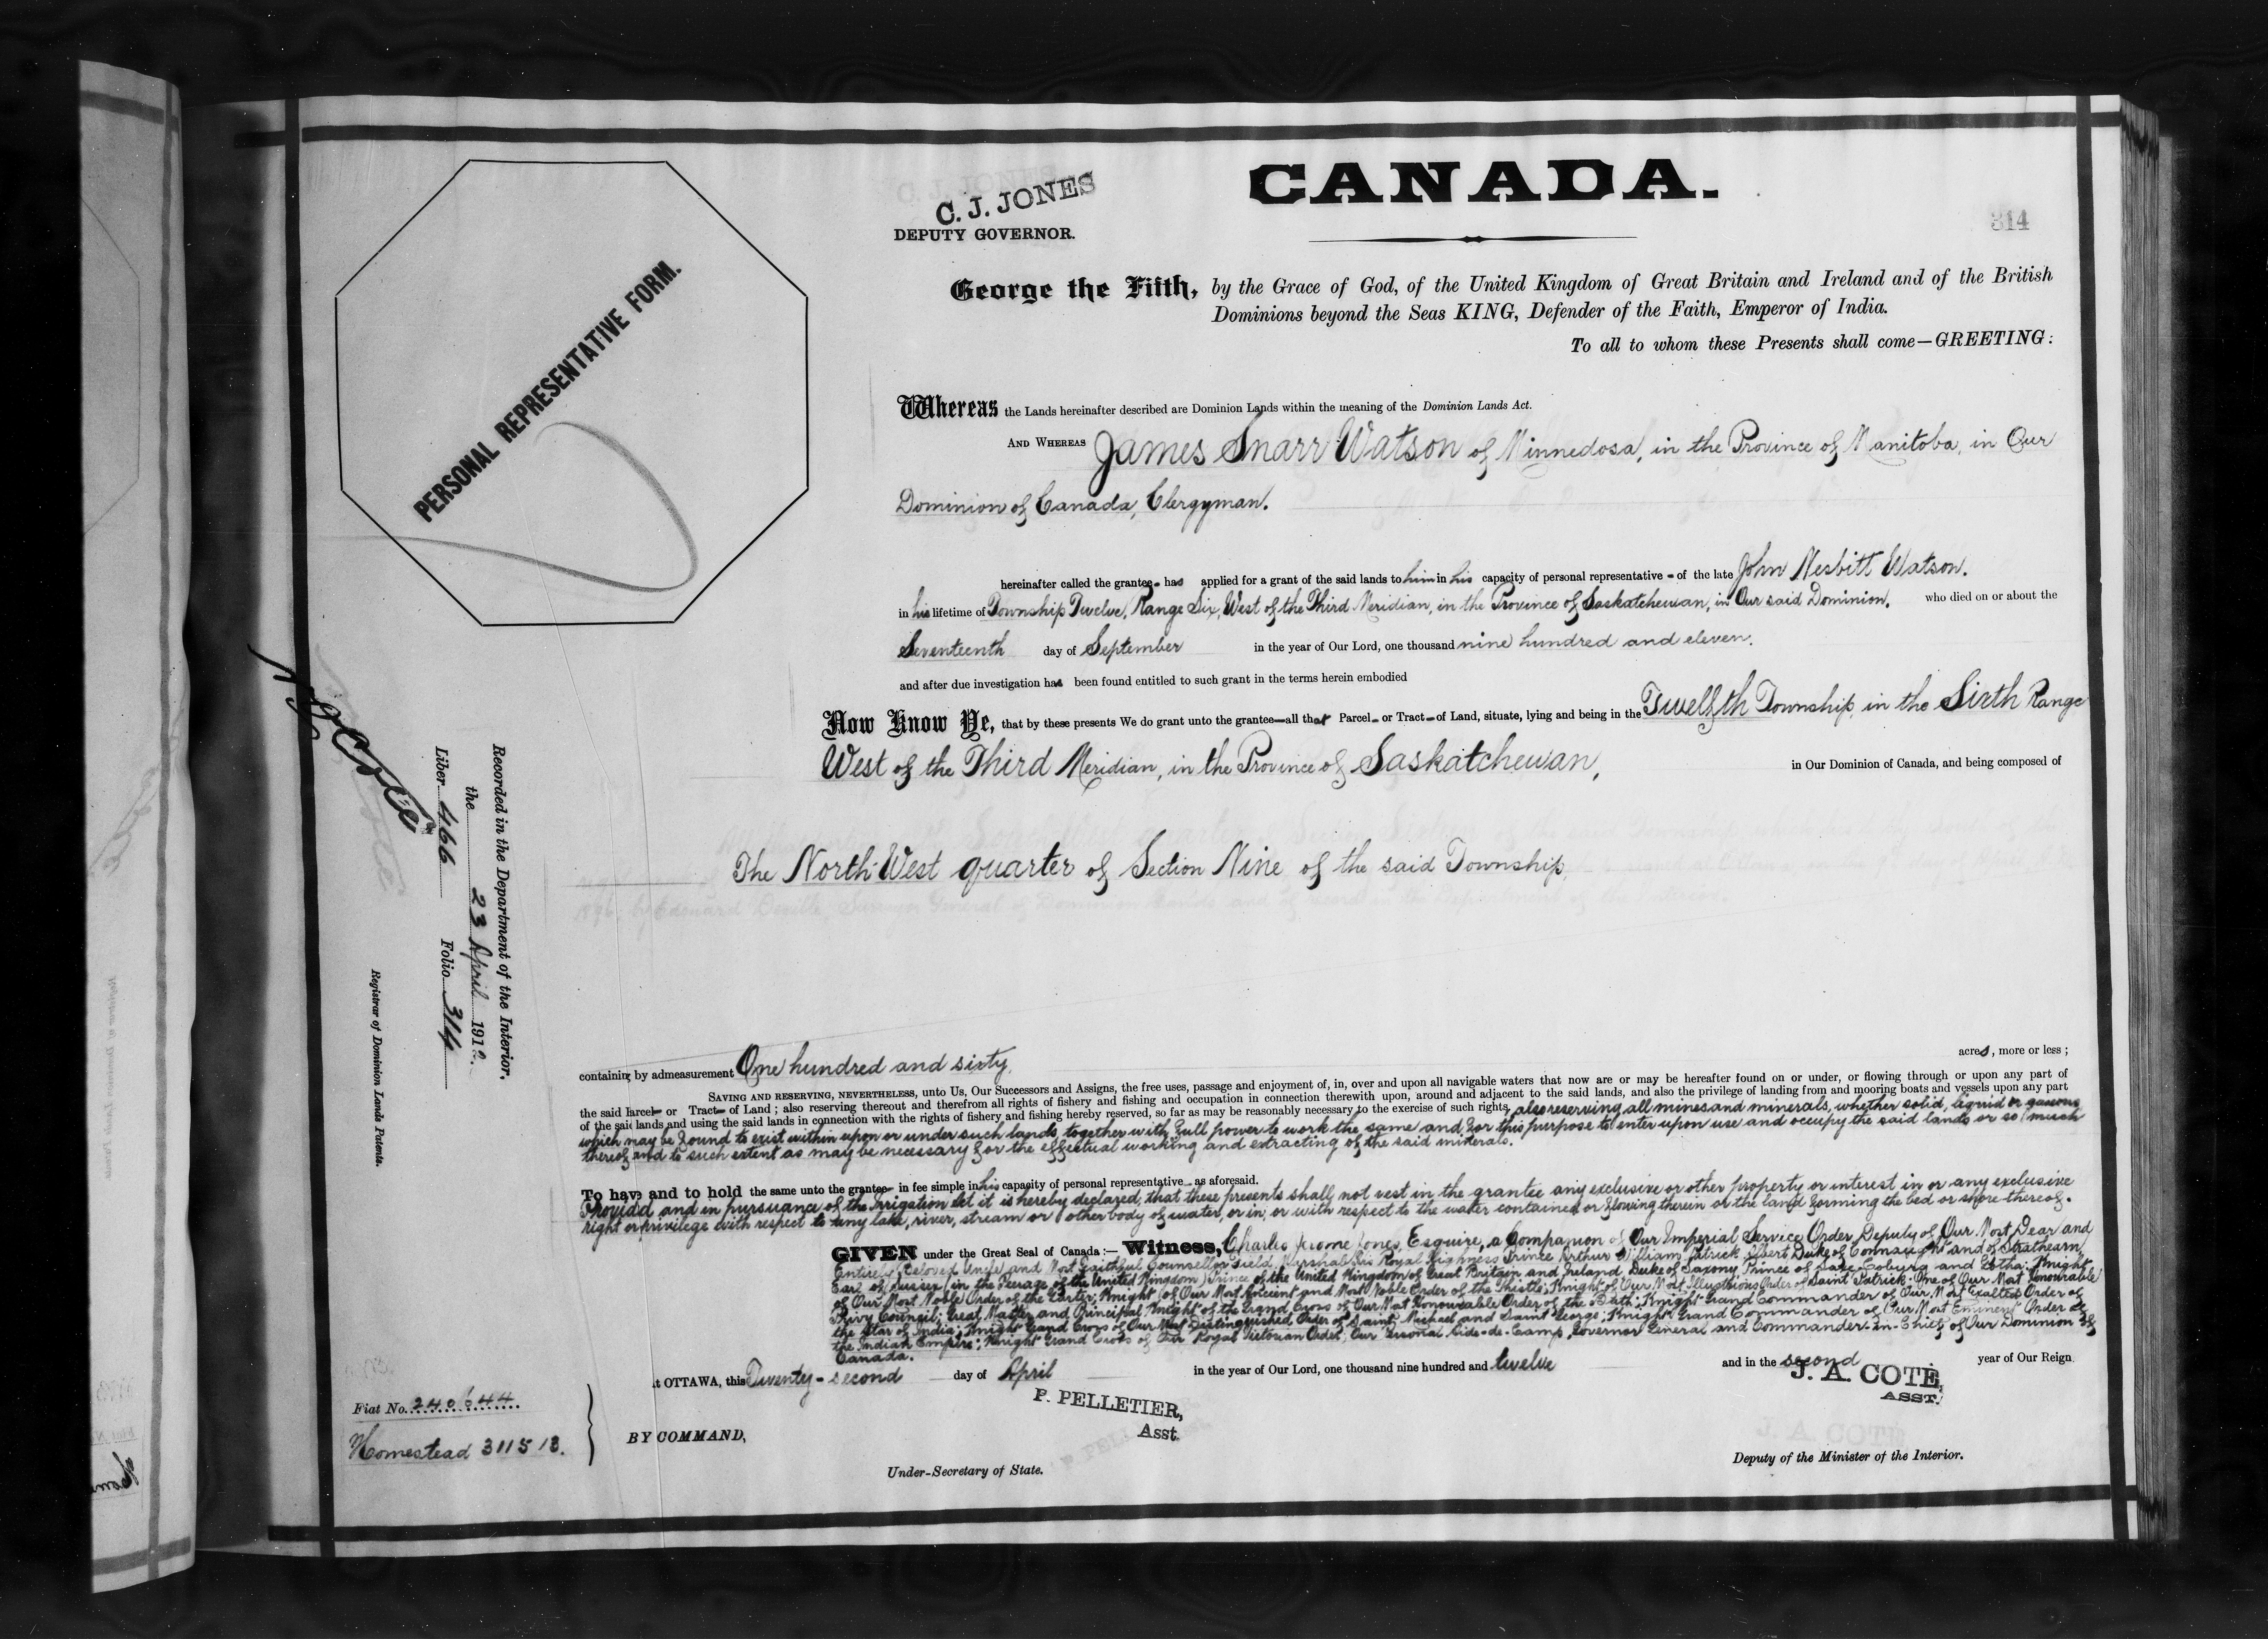 CANADA.
C. J. JONES
DEPUTY GOVERNOR.
314
PERSONAL REPRESENTATIVE FORM.
George the Fifth, by the Grace of God, of the United Kingdom of Great Britain and Ireland and of the British
Dominions beyond the Seas KING, Defender of the Faith, Emperor of India.
To all to whom these Presents shall come—GREETING:
Whereas the Lands hereinafter described are Dominion Lands within the meaning of the Dominion Lands Act.
AND WHEREAS James Snarr Watson of Minnedosa, in the Province of Manitoba, in Our
Dominion of Canada, Clergyman.
hereinafter called the grantee has applied for a grant of the said lands to him in his capacity of personal representative of the late John Nesbitt Watson.
in his lifetime of Township Twelve, Range Six, West of the Third Meridian, in the Province of Saskatchewan, in Our said Dominion. who died on or about the
Seventeenth day of September in the year of Our Lord, one thousand nine hundred and eleven.
and after due investigation has been found entitled to such grant in the terms herein embodied
Now Know Ye, that by these presents We do grant unto the grantee—all that Parcel or Tract of Land, situate, lying and being in the Twelfth Township, in the Sixth Range
West of the Third Meridian, in the Province of Saskatchewan, in Our Dominion of Canada, and being composed of
The North-West quarter of Section Nine of the said Township,
containing by admeasurement One hundred and sixty acres, more or less;
SAVING AND RESERVING, NEVERTHELESS, unto Us, Our Successors and Assigns, the free uses, passage and enjoyment of, in, over and upon all navigable waters that now are or may be hereafter found on or under, or flowing through or upon any part of
the said Parcel or Tract of Land; also reserving thereout and therefrom all rights of fishery and fishing and occupation in connection therewith upon, around and adjacent to the said lands, and also the privilege of landing from and mooring boats and vessels upon any part
of the said lands and using the said lands in connection with the rights of fishery and fishing hereby reserved, so far as may be reasonably necessary to the exercise of such rights, also reserving all mines and minerals, whether solid, liquid or gaseous,
which may be found to exist within upon or under such lands, together with full power to work the same and for this purpose to enter upon use and occupy the said lands or so much
thereof and to such extent as may be necessary for the effectual working and extracting of the said minerals.
To have and to hold the same unto the grantee in fee simple in his capacity of personal representative as aforesaid.
Provided and in pursuance of the Irrigation Act it is hereby declared, that these presents shall not vest in the grantee any exclusive or other property or interest in or any exclusive
right or privilege with respect to any lake, river, stream or other body of water, or in, or with respect to the water contained or flowing therein or the land forming the bed or shore thereof.
GIVEN under the Great Seal of Canada:— Witness, Charles Jerome Jones, Esquire, a Companion of Our Imperial Service Order Deputy of Our Most Dear and
Entirely Beloved Uncle and Most Faithful Counsellor Field Marshal His Royal Highness Prince Arthur William Patrick Albert Duke of Connaught and of Strathearn,
Earl of Sussex (in the Peerage of the United Kingdom) Prince of the United Kingdom of Great Britain and Ireland, Duke of Saxony, Prince of Saxe-Coburg and Gotha; Knight
of Our Most Noble Order of the Garter; Knight of Our Most Ancient and Most Noble Order of the Thistle; Knight of Our Most Illustrious Order of Saint Patrick; One of Our Most Honourable
Privy Council; Great Master and Principal Knight of the Grand Cross of Our Most Honourable Order of the Bath; Knight Grand Commander of Our Most Exalted Order of
the Star of India; Knight Grand Cross of Our Most Distinguished Order of Saint Michael and Saint George; Knight Grand Commander of Our Most Eminent Order of
the Indian Empire; Knight Grand Cross of Our Royal Victorian Order; Our Personal Aide-de-Camp, Governor General and Commander-in-Chief of Our Dominion of
Canada.
at OTTAWA, this Twenty-second day of April in the year of Our Lord, one thousand nine hundred and twelve and in the second year of Our Reign
P. PELLETIER,
Asst.
J. A. COTE,
ASST.
BY COMMAND,
Under-Secretary of State.
Deputy of the Minister of the Interior.
Recorded in the Department of the Interior,
the 23 April 1912.
Liber 466 Folio 314
Registrar of Dominion Lands Patents.
Fiat No. 240644
Homestead 311513.